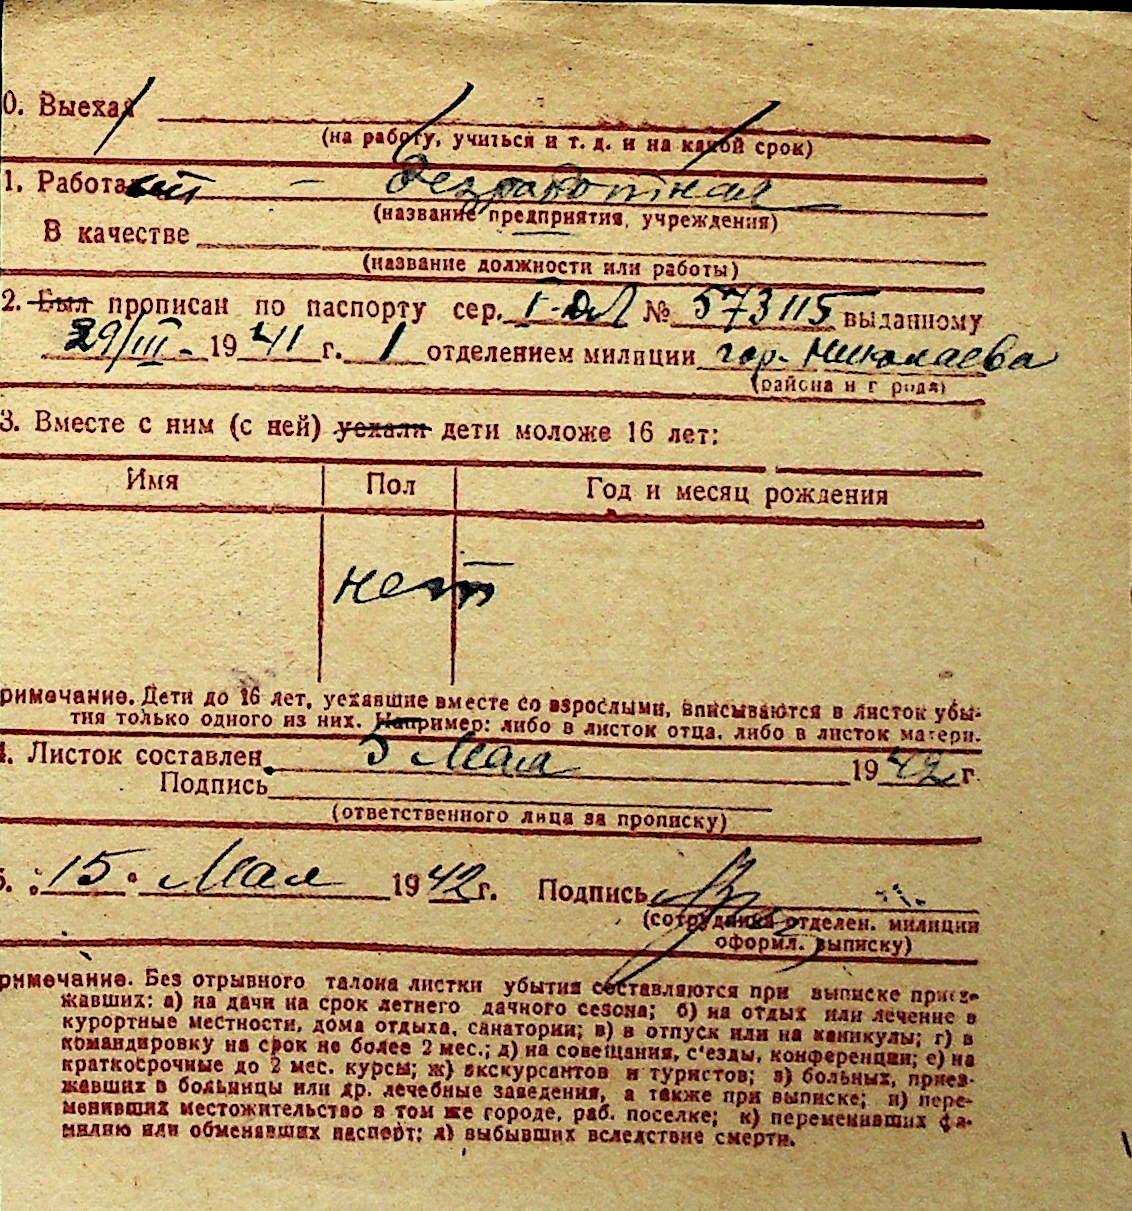 0. Выехал
(на работу, учиться и т. д. и на какой срок)
1. Работает – безработная
(название предприятия, учреждения)
В качестве
(название должности или работы)
2. Был прописан по паспорту сер. № 573115 выданному
29/III - 1941 г. 1 отделением милиции гор. Николаева
(района и города)
3. Вместе с ним (с ней) уехали дети моложе 16 лет:
Имя Пол Год и месяц рождения
нет
римечание. Дети до 16 лет, уехавшие вместе со взрослыми, вписываются в листок убы-
тия только одного из них. Например: либо в листок отца, либо в листок матери.
4. Листок составлен 5 Мая 1942 г.
Подпись
(ответственного лица за прописку)
5. "15" Мая 1942 г. Подпись
(сотрудника отделен. милиции
оформл. выписку)
римечание. Без отрывного талона листки убытия составляются при выписке приез-
жавших: а) на дачи на срок летнего дачного сезона; б) на отдых или лечение в
курортные местности, дома отдыха, санатории; в) в отпуск или на каникулы; г) в
командировку на срок не более 2 мес.; д) на совещания, с'езды, конференции; е) на
краткосрочные до 2 мес. курсы; ж) экскурсантов и туристов; з) больных, приез-
жавших в больницы или др. лечебные заведения, а также при выписке; и) пере-
менивших местожительство в том же городе, раб. поселке; к) переменивших фа-
милию или обменявших паспорт; л) выбывших вследствие смерти.